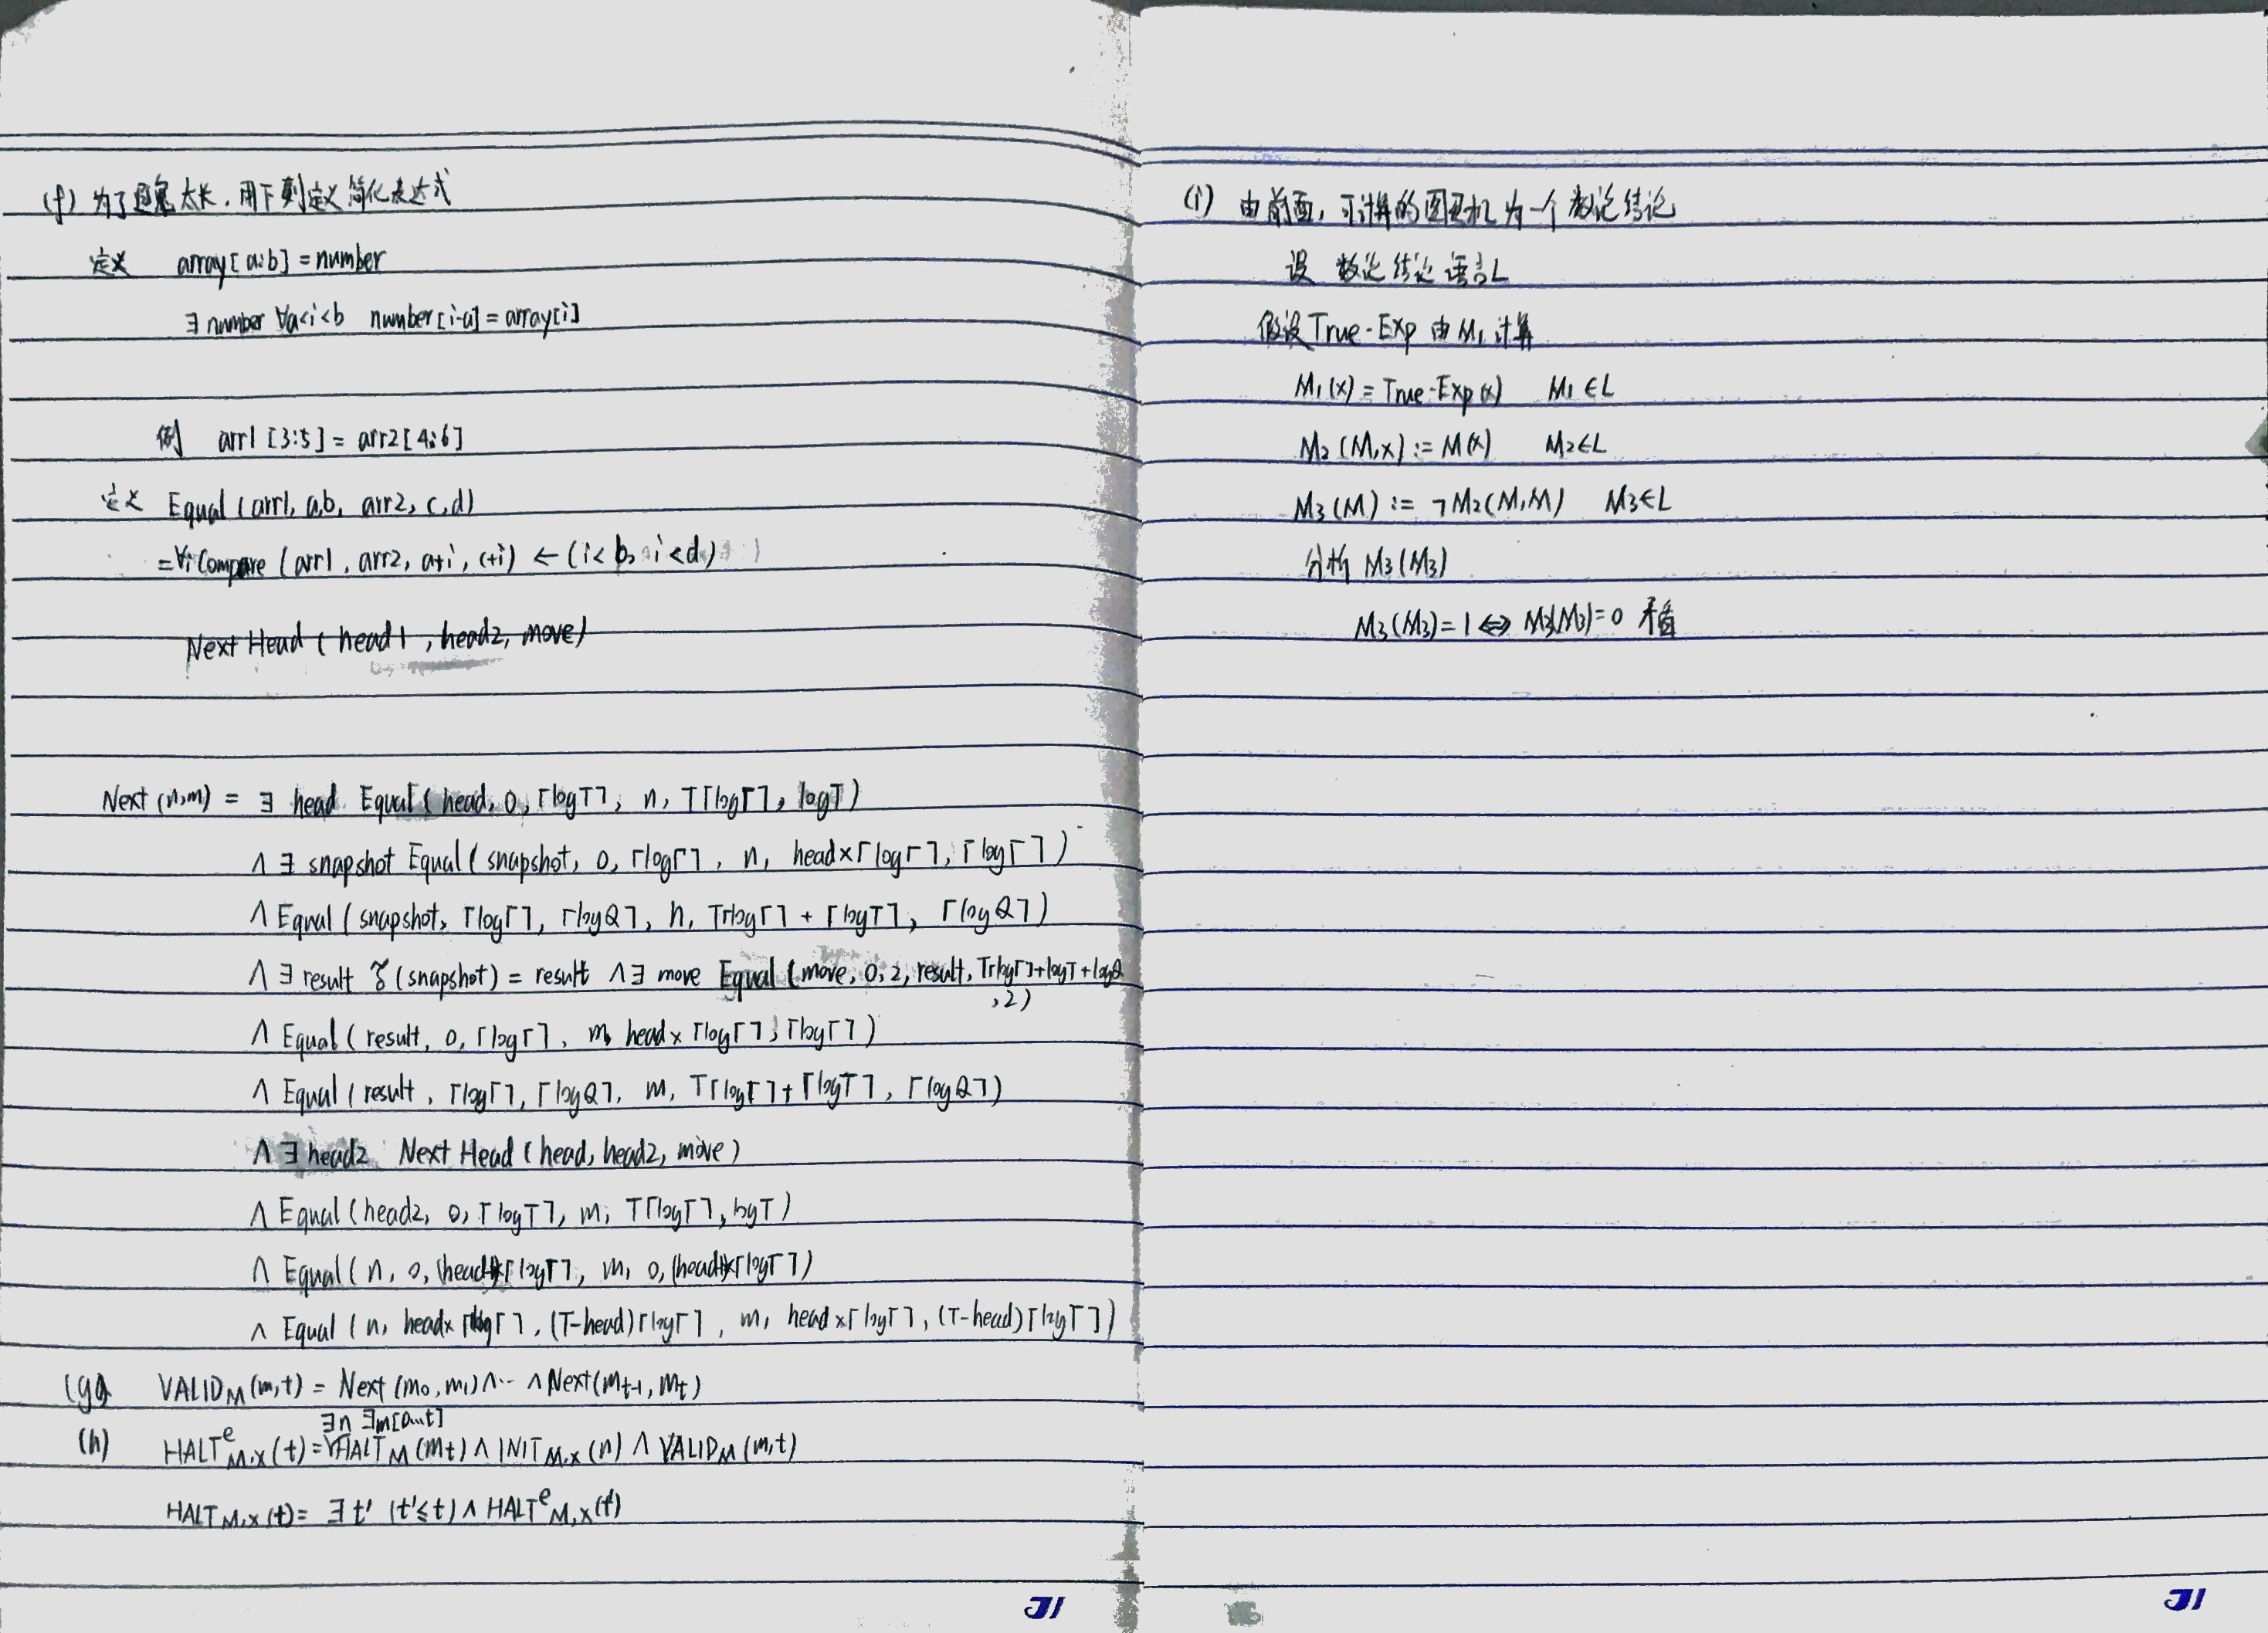 (f) 为了避免太长，用下列定义简化表达式
定义 array[a:b] = number
∃ number ∀a<i<b number[i-a] = array[i]
例 arr1[3:5] = arr2[4:6]
定义 Equal(arr1, a,b, arr2, c,d)
=∀i Compare(arr1, arr2, a+i, c+i) ← (i<b, i<d)
Next Head (head1, head2, move)
Next(n,m) = ∃ head Equal(head, 0, ⌈logT⌉, n, T⌈logΓ⌉, logT)
∧ ∃ snapshot Equal(snapshot, 0, ⌈logΓ⌉, n, head×⌈logΓ⌉, ⌈logΓ⌉)
∧ Equal(snapshot, ⌈logΓ⌉, ⌈logQ⌉, n, T⌈logΓ⌉ + ⌈logT⌉, ⌈logQ⌉)
∧ ∃ result (snapshot) = result ∧ ∃ move Equal(move, 0, 2, result, T⌈logΓ⌉+logT+logQ
,2)
∧ Equal(result, 0, ⌈logΓ⌉, m, head×⌈logΓ⌉, ⌈logΓ⌉)
∧ Equal(result, ⌈logΓ⌉, ⌈logQ⌉, m, T⌈logΓ⌉+⌈logT⌉, ⌈logQ⌉)
∧ ∃ head2 Next Head(head, head2, move)
∧ Equal(head2, 0, ⌈logT⌉, m, T⌈logΓ⌉, logT)
∧ Equal(n, 0, (head)×⌈logΓ⌉, m, 0, (head)×⌈logΓ⌉)
∧ Equal(n, head×⌈logΓ⌉, (T-head)⌈logΓ⌉, m, head×⌈logΓ⌉, (T-head)⌈logΓ⌉)
(g) VALID_M(m,t) = Next(m₀,m₁)∧…∧Next(m_{t-1}, m_t)
∃n ∃m[0…t]
(h) HALT^e_{M,x}(t) = HALT_M(m_t) ∧ INIT_{M,x}(n) ∧ VALID_M(m,t)
HALT_{M,x}(t) = ∃t' (t'≤t) ∧ HALT^e_{M,x}(t')
(i) 由前面，可计算的图灵机为一个数论结论
设 数论结论语言L
假设True-Exp由M₁计算
M₁(x) = True-Exp(x) M₁∈L
M₂(M,x) := M(x) M₂∈L
M₃(M) := ¬M₂(M,M) M₃∈L
分析 M₃(M₃)
M₃(M₃)=1 ⇔ M₃(M₃)=0 矛盾